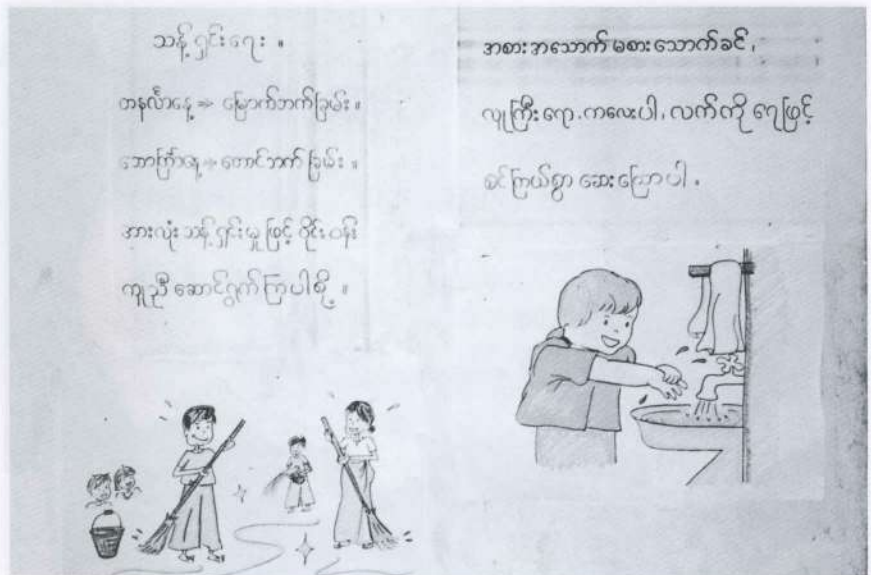 သန့်ရှင်းရေး ။
တနင်္လာနေ့ ⇒ မြောက်ဘက်ခြမ်း ။
သောကြာနေ့ ⇒ တောင်ဘက်ခြမ်း ။
အားလုံးသန့်ရှင်းမှုဖြင့် ဝိုင်းဝန်း
ကူညီ ဆောင်ရွက်ကြပါစို့ ။
အစားအသောက် မစားသောက်ခင် ၊
လူကြီးရော ၊ ကလေးပါ ၊ လက်ကို ရေဖြင့်
စင်ကြယ်စွာ ဆေးကြောပါ ၊